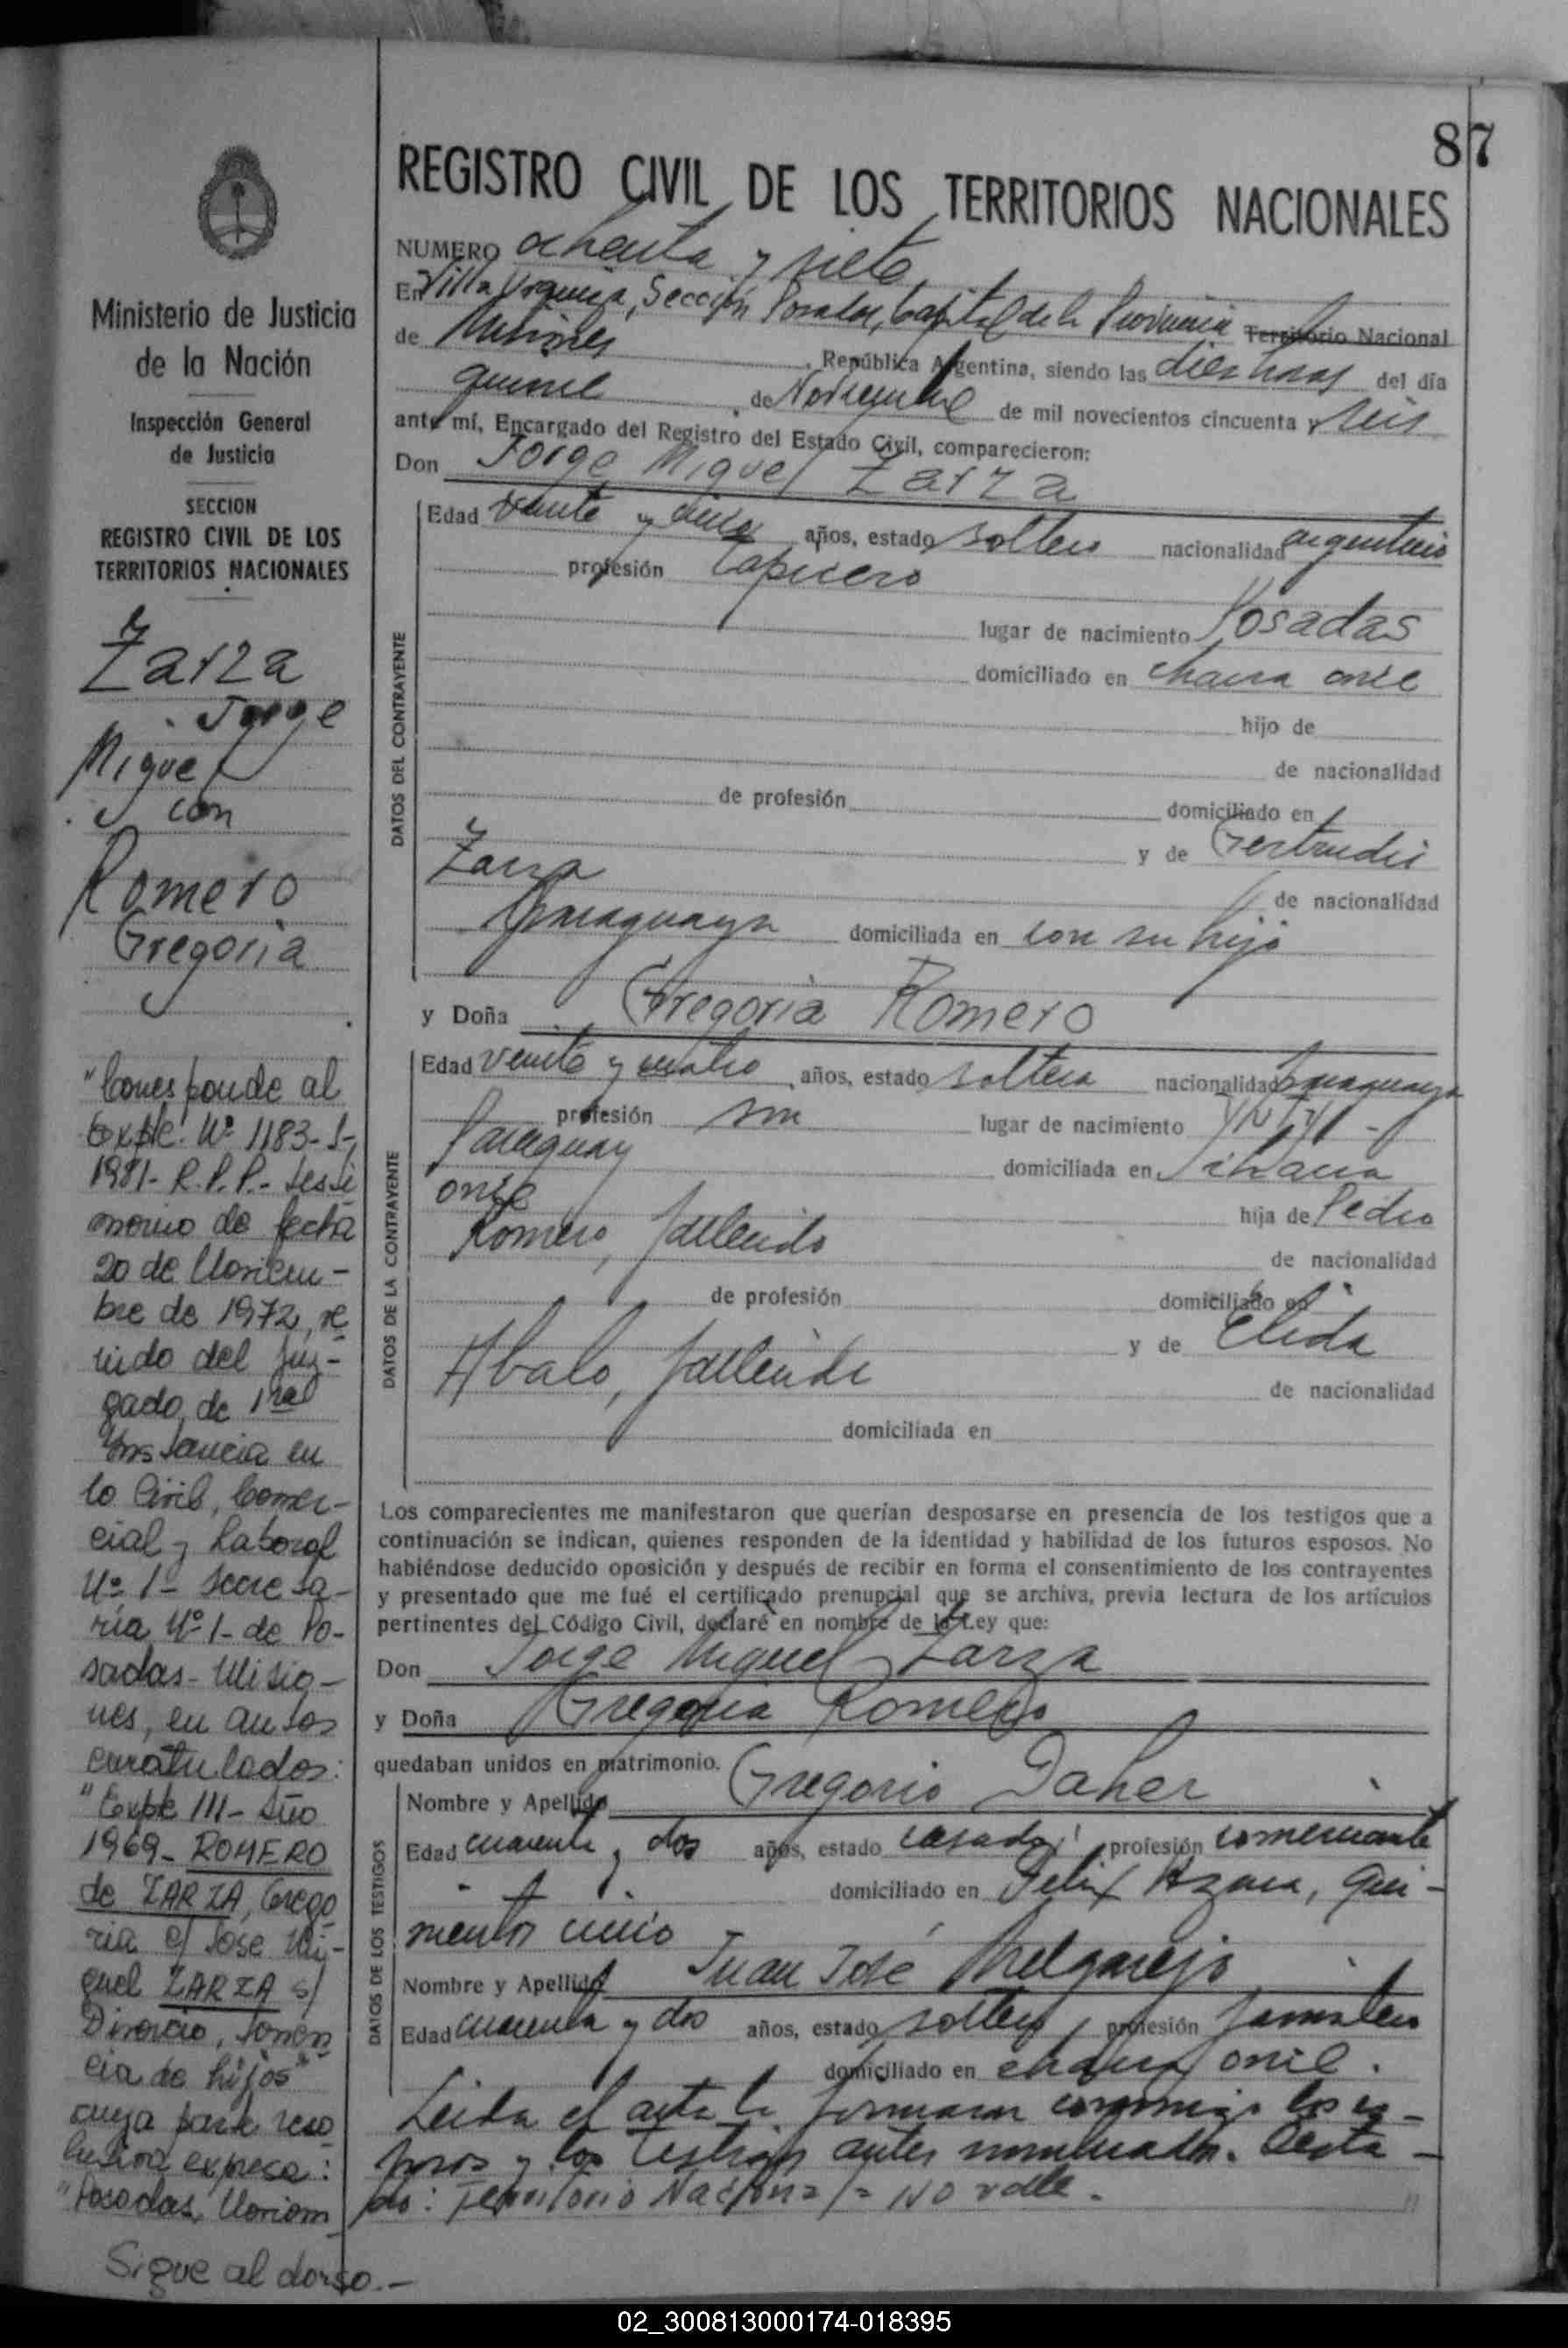 87
REGISTRO CIVIL DE LOS TERRITORIOS NACIONALES
NUMERO ochenta y siete
En Villa Urquiza, Sección Posadas, Capital de la Provincia Territorio Nacional
de Misiones, República Argentina, siendo las diez horas del día
quince de Noviembre de mil novecientos cincuenta y seis
ante mí, Encargado del Registro del Estado Civil, comparecieron:
Don Jorge Miguel Zarza
DATOS DEL CONTRAYENTE
Edad veinte y años, estado soltero nacionalidad argentino
profesión Tapicero
lugar de nacimiento Posadas
domiciliado en chacra once
hijo de
de nacionalidad
de profesión domiciliado en
y de Gertrudis
Zarza de nacionalidad
paraguaya domiciliada en con su hijo
y Doña Gregoria Romero
DATOS DE LA CONTRAYENTE
Edad veinte y cuatro años, estado soltera nacionalidad paraguaya
profesión sin lugar de nacimiento Yuty -
Paraguay domiciliada en chacra
once hija de Pedro
Romero, fallecido de nacionalidad
de profesión domiciliado en
y de Elida
Abalo, fallecida de nacionalidad
domiciliada en
Los comparecientes me manifestaron que querían desposarse en presencia de los testigos que a
continuación se indican, quienes responden de la identidad y habilidad de los futuros esposos. No
habiéndose deducido oposición y después de recibir en forma el consentimiento de los contrayentes
y presentado que me fué el certificado prenupcial que se archiva, previa lectura de los artículos
pertinentes del Código Civil, declaré en nombre de la Ley que:
Don Jorge Miguel Zarza
y Doña Gregoria Romero
quedaban unidos en matrimonio.
DATOS DE LOS TESTIGOS
Nombre y Apellido Gregorio Daher
Edad cuarenta y dos años, estado casado, profesión comerciante
domiciliado en Felix Azara, qui-
nientos cinco
Nombre y Apellido Juan José Melgarejo
Edad cuarenta y dos años, estado soltero, profesión jornalero
domiciliado en chacra once.
Leida el acta la firmaron conmigo los es-
posos y los testigos antes nombrados. Testa-
do: Territorio Nacional = No vale.
Ministerio de Justicia
de la Nación
Inspección General
de Justicia
SECCION
REGISTRO CIVIL DE LOS
TERRITORIOS NACIONALES
Zarza
Jorge
Miguel
con
Romero
Gregoria
"Corresponde al
Expte. Nº 1183-S-,
1981- R.P.P.- Testi
monio de fecha
20 de Noviem-
bre de 1972, ve
nido del Juz-
gado de 1ra
Instancia en
lo Civil, Comer-
cial y Laboral
Nº 1- Secreta-
ría Nº 1- de Po-
sadas- Misio-
nes, en autos
caratulados:
"Expte 111- Año
1969- ROMERO
de ZARZA, Grego
ria c/ Jose Mi-
guel ZARZA s/
Divorcio, Tenen
cia de hijos"
cuya parte reso
lutiva expresa:
"Posadas, Noviem
Sigue al dorso.-
02_300813000174-018395